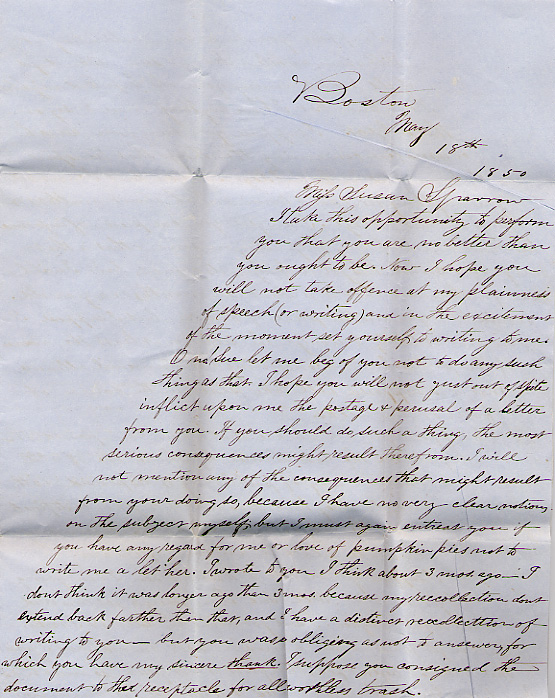 Boston
May
18th
1850
Miss Susan Sparrow
I take this opportunity to perform
you that you are no better than
you ought to be. Now I hope you
will not take offence at my plainness
of speech (or writing) and in the excitement
of the moment set yourself to writing to me.
O na Sue let me beg of you not to do any such
thing as that. I hope you will not just out of spite
inflict upon me the postage & perusal of a letter
from you. If you should do such a thing, the most
serious consequences might result therefrom. I will
not mention any of the consequences that might result
from your doing so, because I have no very clear notions
on the subject myself, but I must again entreat you if
you have any regard for me or love of pumpkin pies not to
write me a let'her. I wrote to you I think about 3 mos. ago — I
dont think it was longer ago than 3 mos. because my reccollection dont
extend back farther than that, and I have a distinct recollection of
writing to you — but you was so obliging as not to answer, for
which you have my sincere thank. I suppose you consigned the
document to that receptacle for all worthless trash.